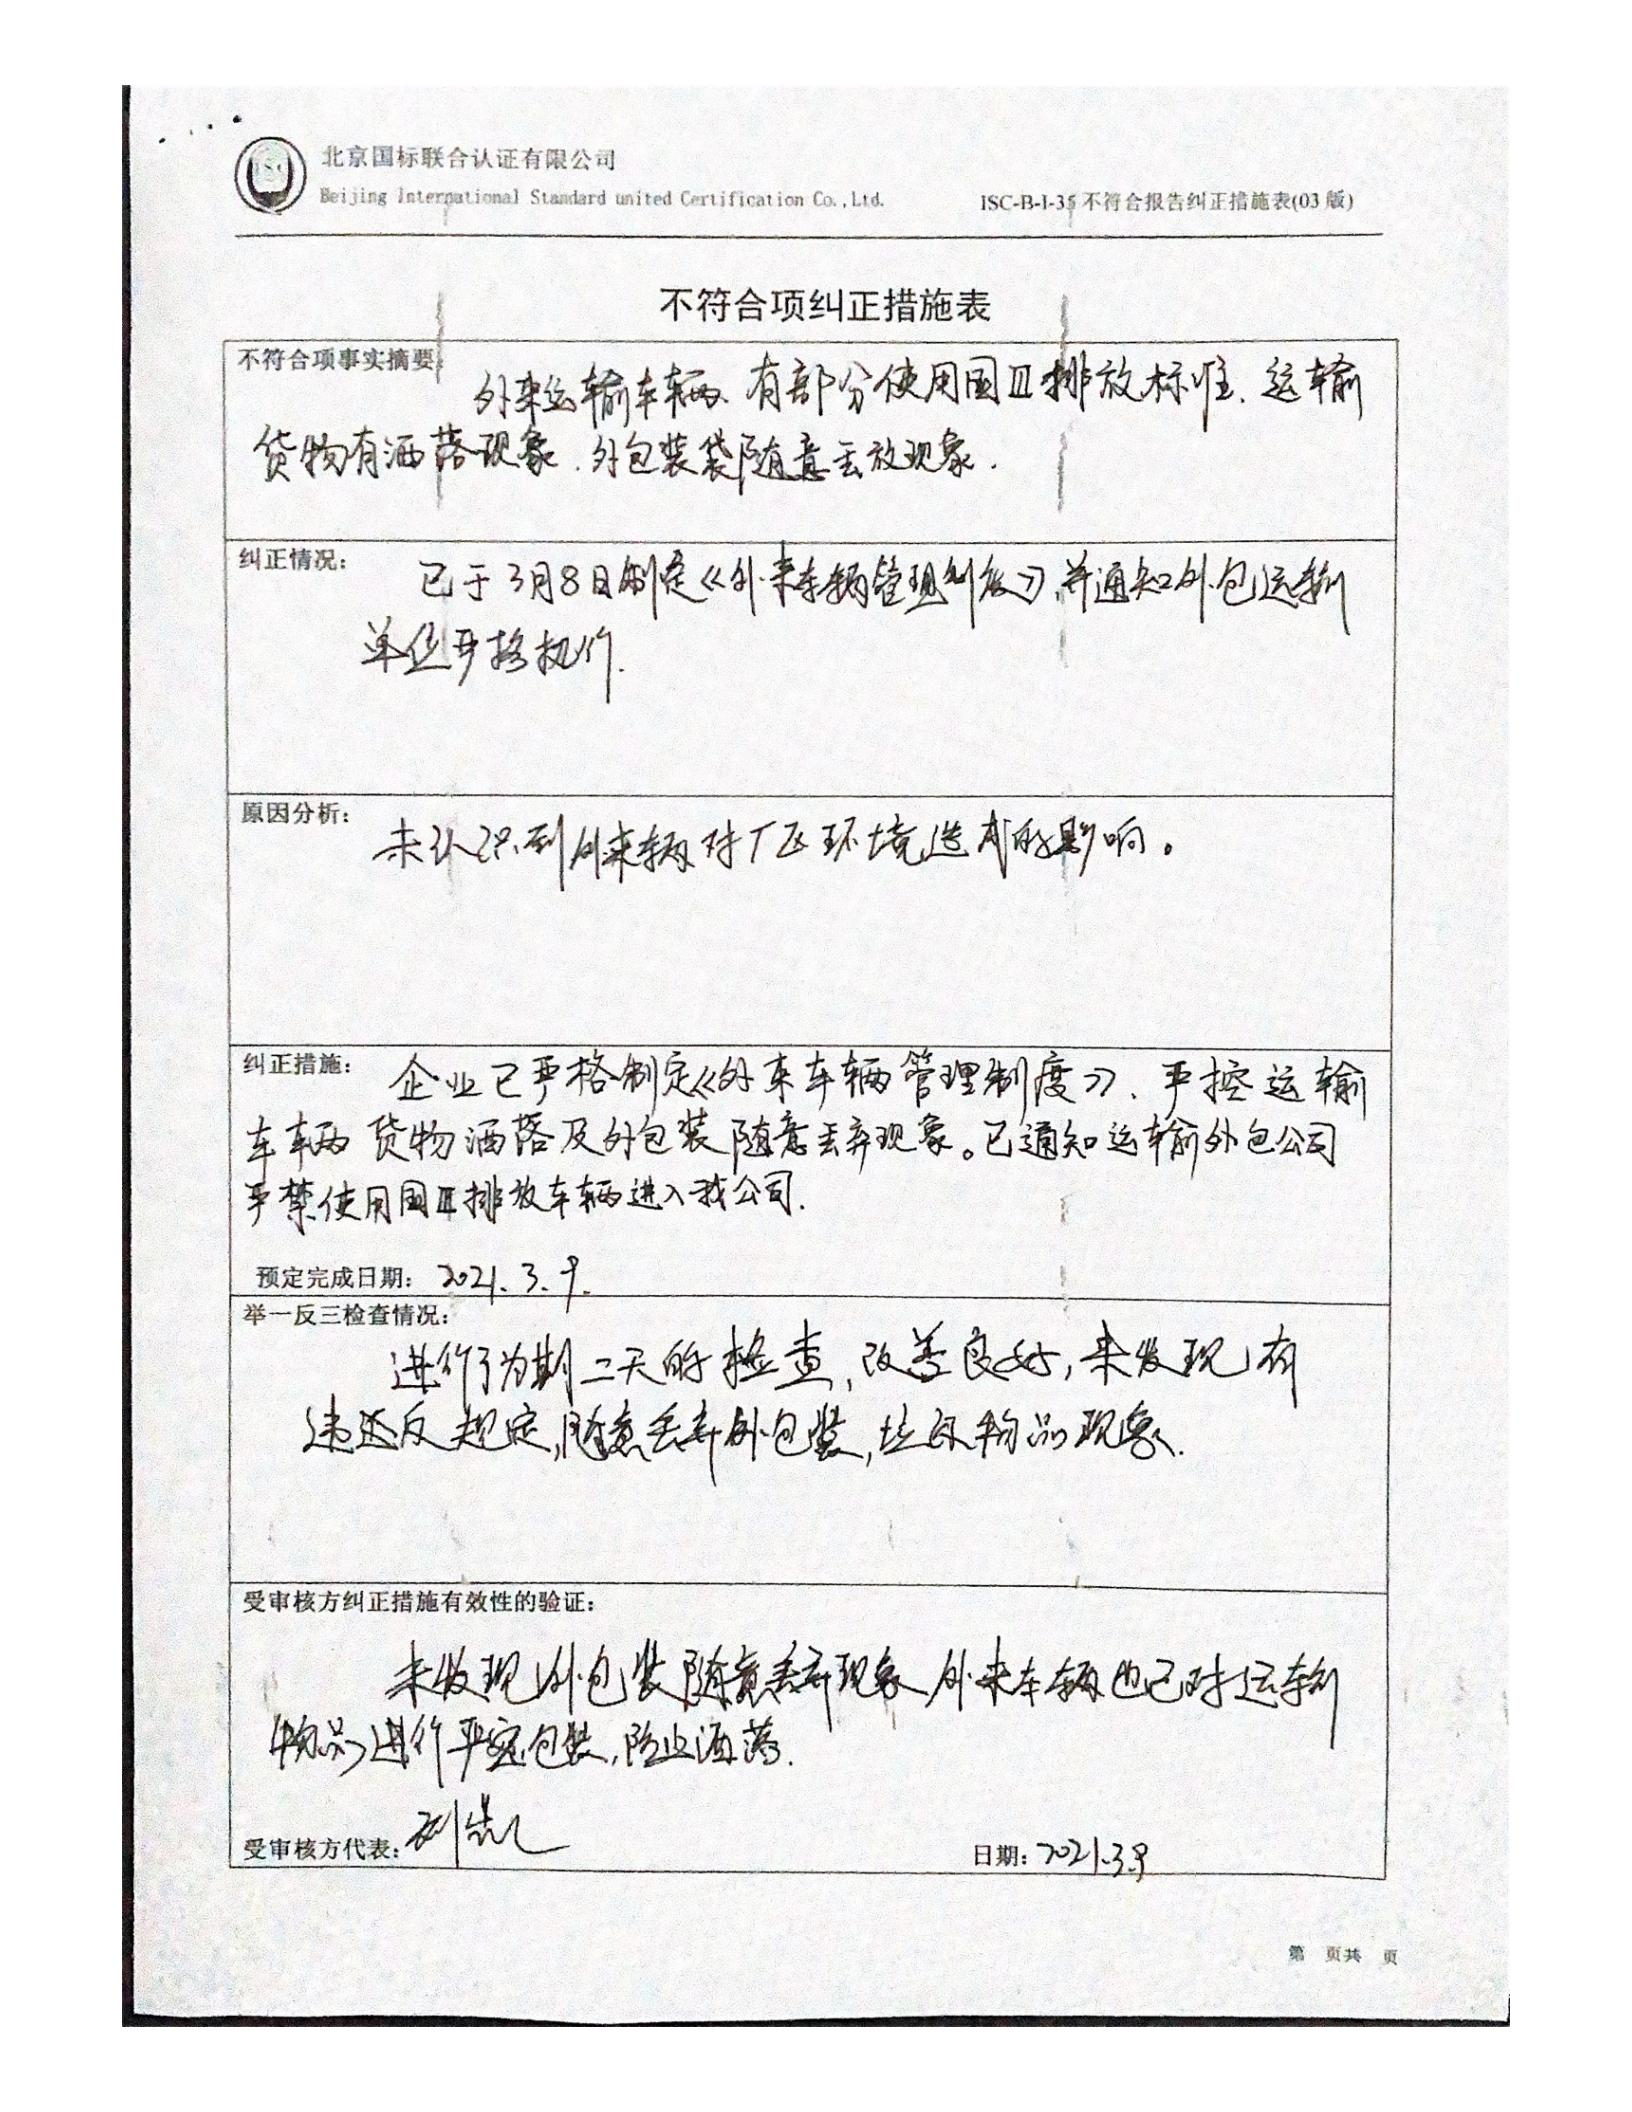 北京国标联合认证有限公司
Beijing International Standard united Certification Co.,Ltd.
ISC-B-I-35 不符合报告纠正措施表(03版)
不符合项纠正措施表
不符合项事实摘要:
外来运输车辆有部分使用国Ⅲ排放标准.运输
货物有洒落现象.外包装袋随意丢放现象.
纠正情况:
已于3月8日制定《外来车辆管理制度》,并通知外包运输
单位严格执行.
原因分析:
未认识到外来辆对厂区环境造成的影响。
纠正措施:
企业已严格制定《外来车辆管理制度》、严控运输
车辆货物洒落及外包装随意丢弃现象。已通知运输外包公司
严禁使用国Ⅲ排放车辆进入我公司.
预定完成日期: 2021.3.9.
举一反三检查情况:
进行了为期二天的检查,改善良好,未发现有
违反规定,随意丢弃外包装,垃圾物品现象.
受审核方纠正措施有效性的验证:
未发现外包装随意丢弃现象 外来车辆也已对运输
物品进行严密包装,防止洒落.
受审核方代表: 刘
日期: 2021.3.9
第 页共 页